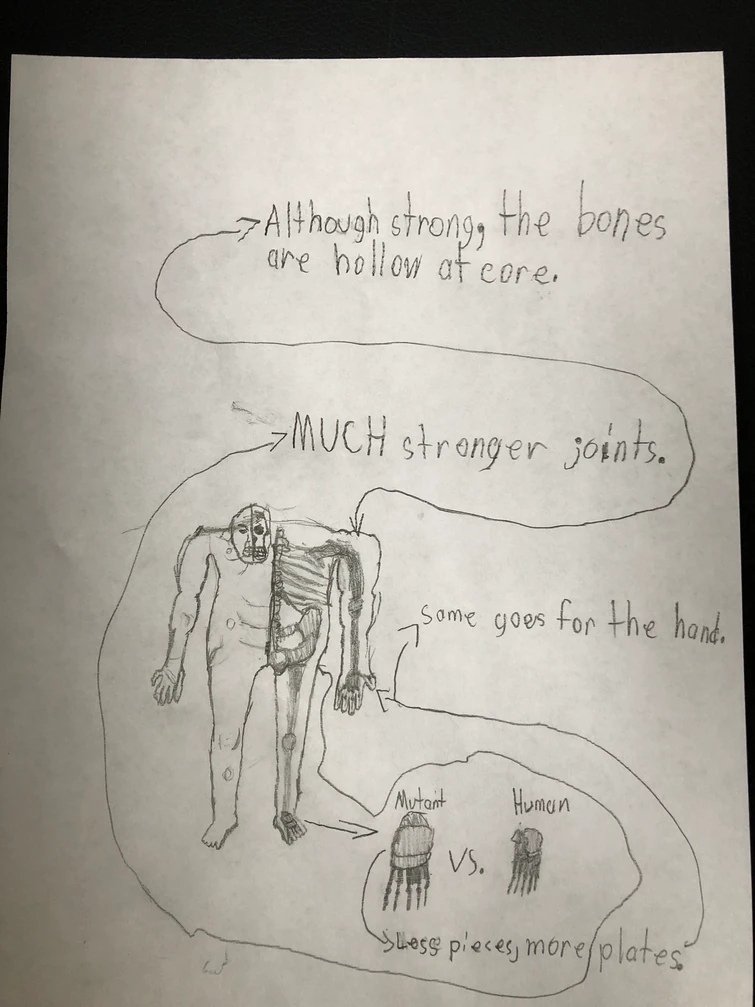 Although strong, the bones
are hollow at core.
MUCH stronger joints.
Same goes for the hand.
Mutant
Human
VS.
Less pieces, more plates.